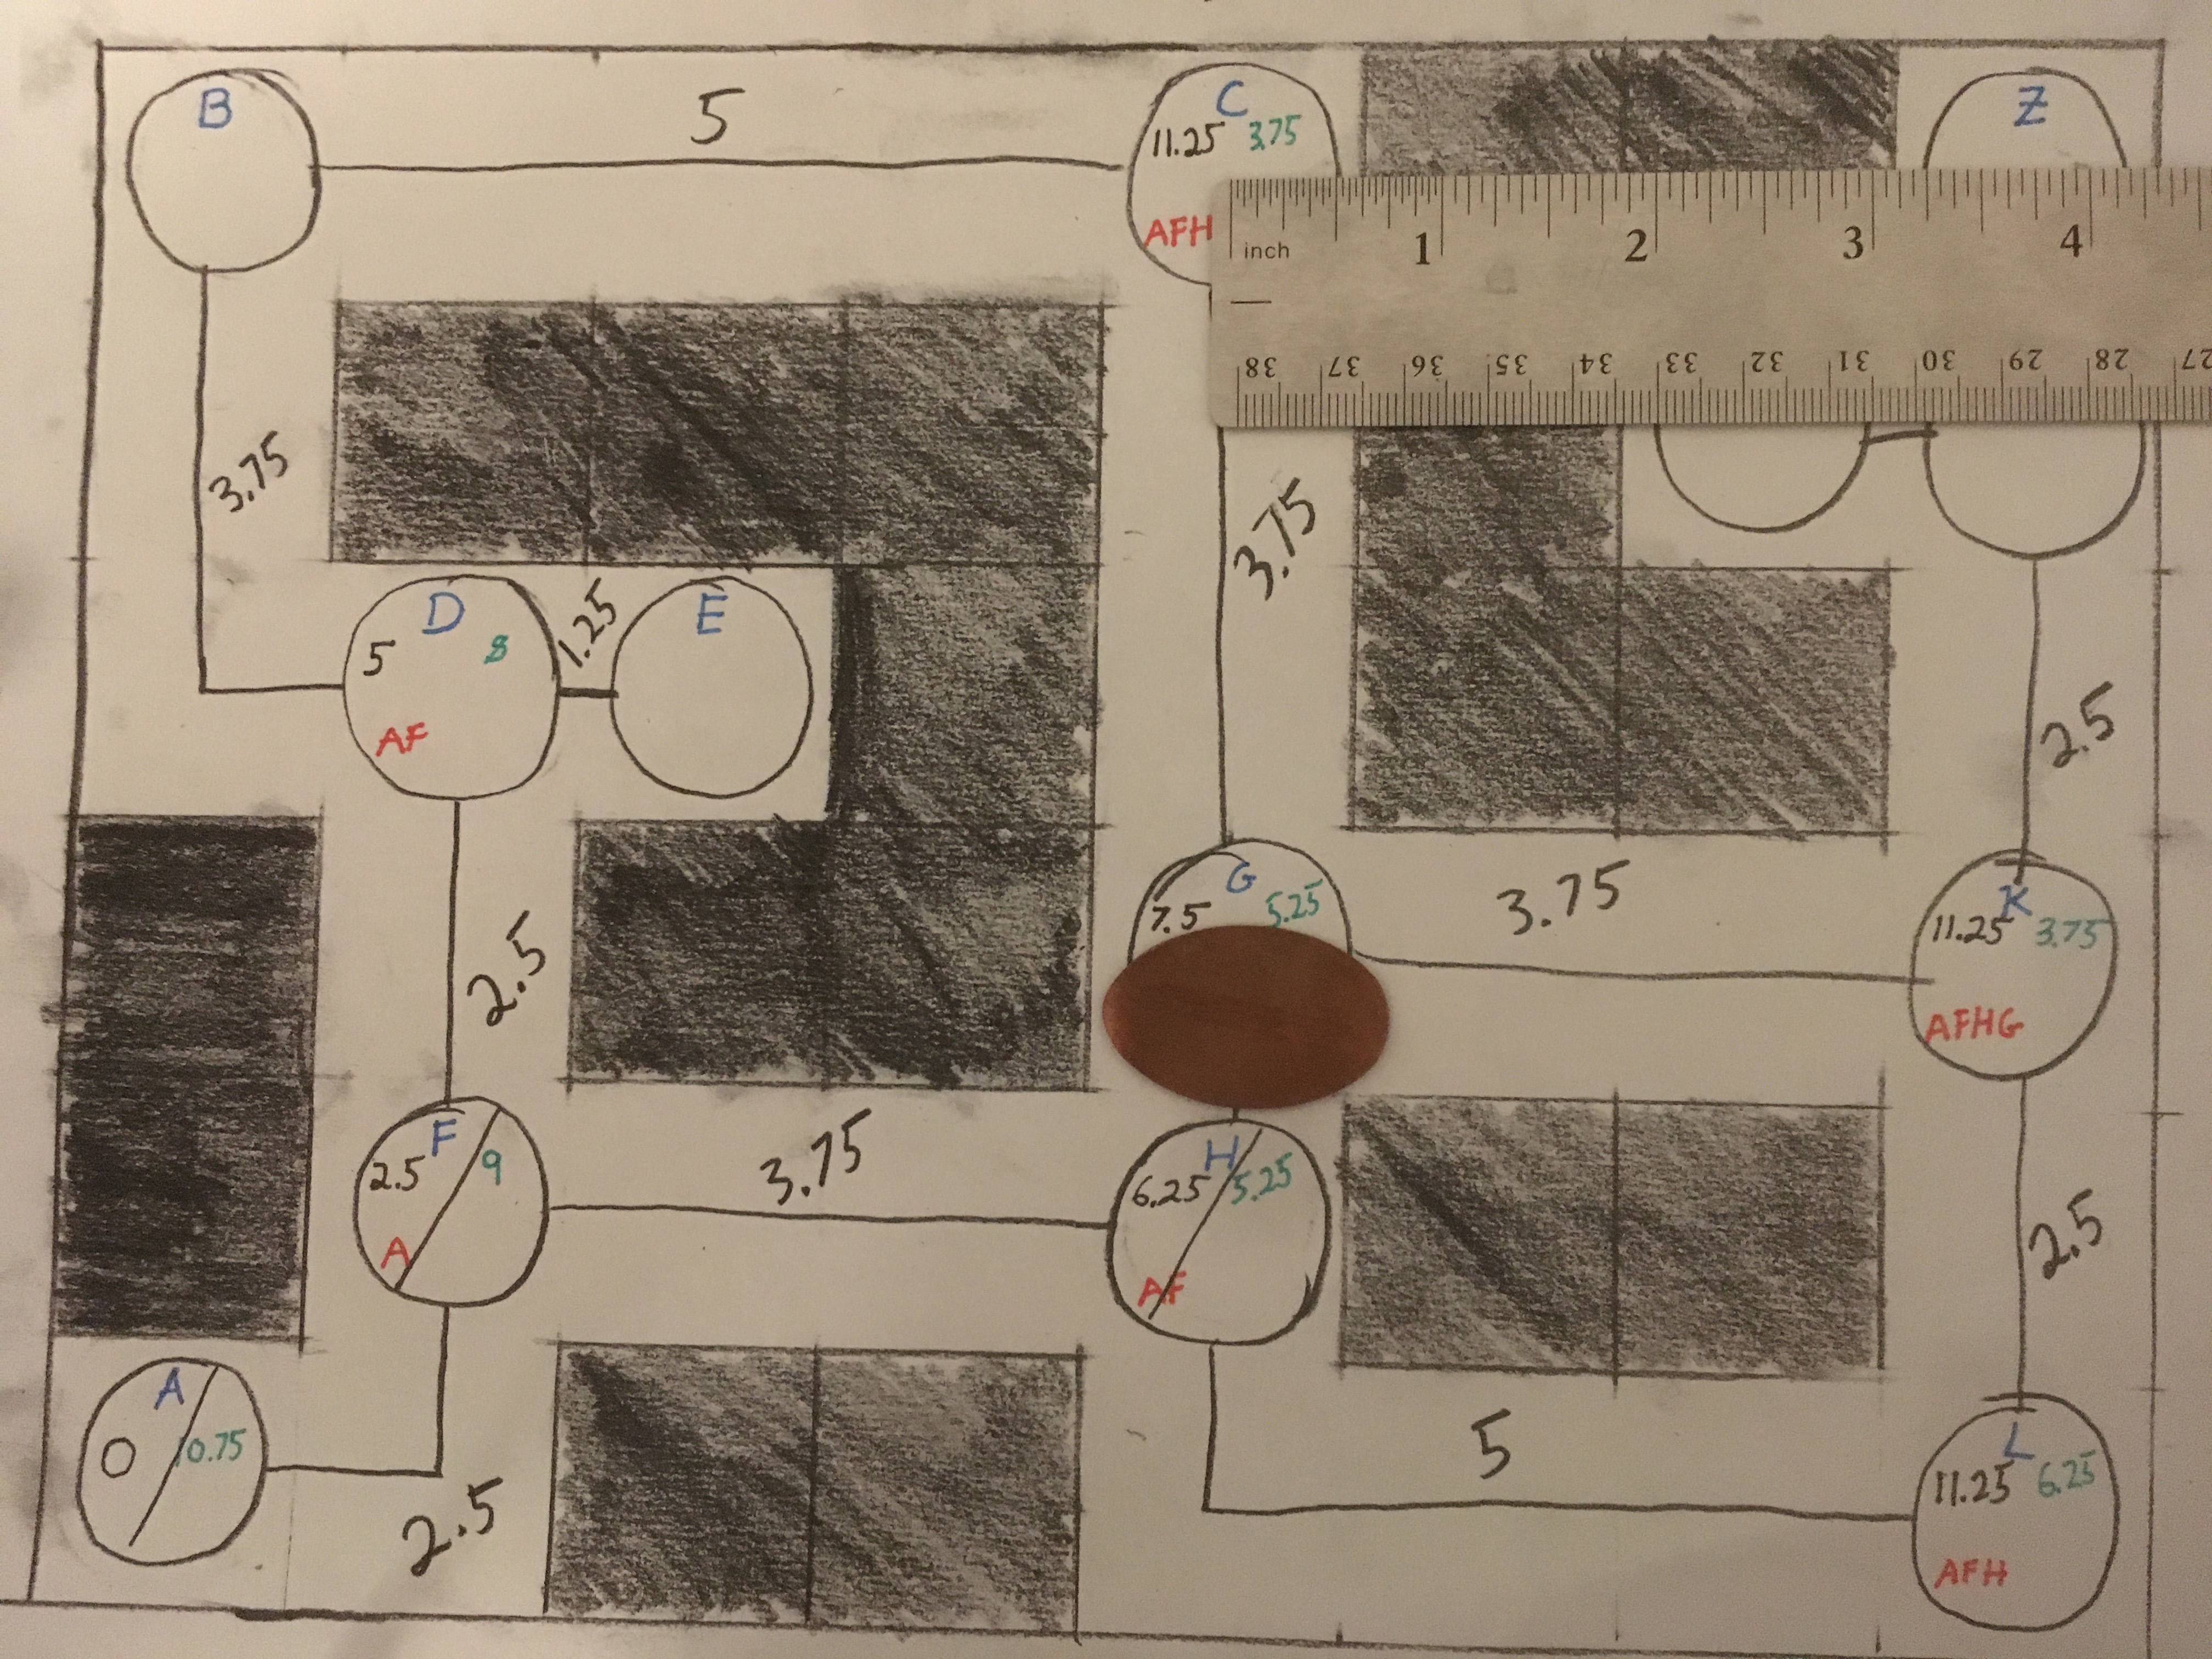 B
5
C
11.25 3.75
AFH
Z
inch 1 2 3 4
38 37 36 35 34 33 32 31 30 29 28 27
3.75
3.75
D
5 8
AF
1.25
E
2.5
G
7.5 5.25
3.75
K
11.25 3.75
AFHG
2.5
F
2.5 9
A
3.75
H
6.25 5.25
AF
2.5
A
0 10.75
2.5
5
L
11.25 6.25
AFH